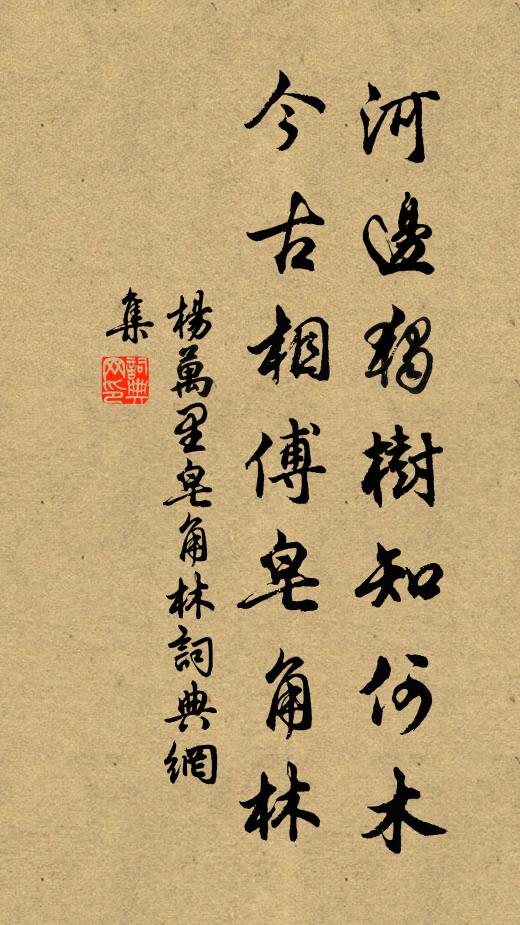 河邊獨樹知何木
今古相傅皂角林
楊萬里皂角林詞典網
集
詞典
网印